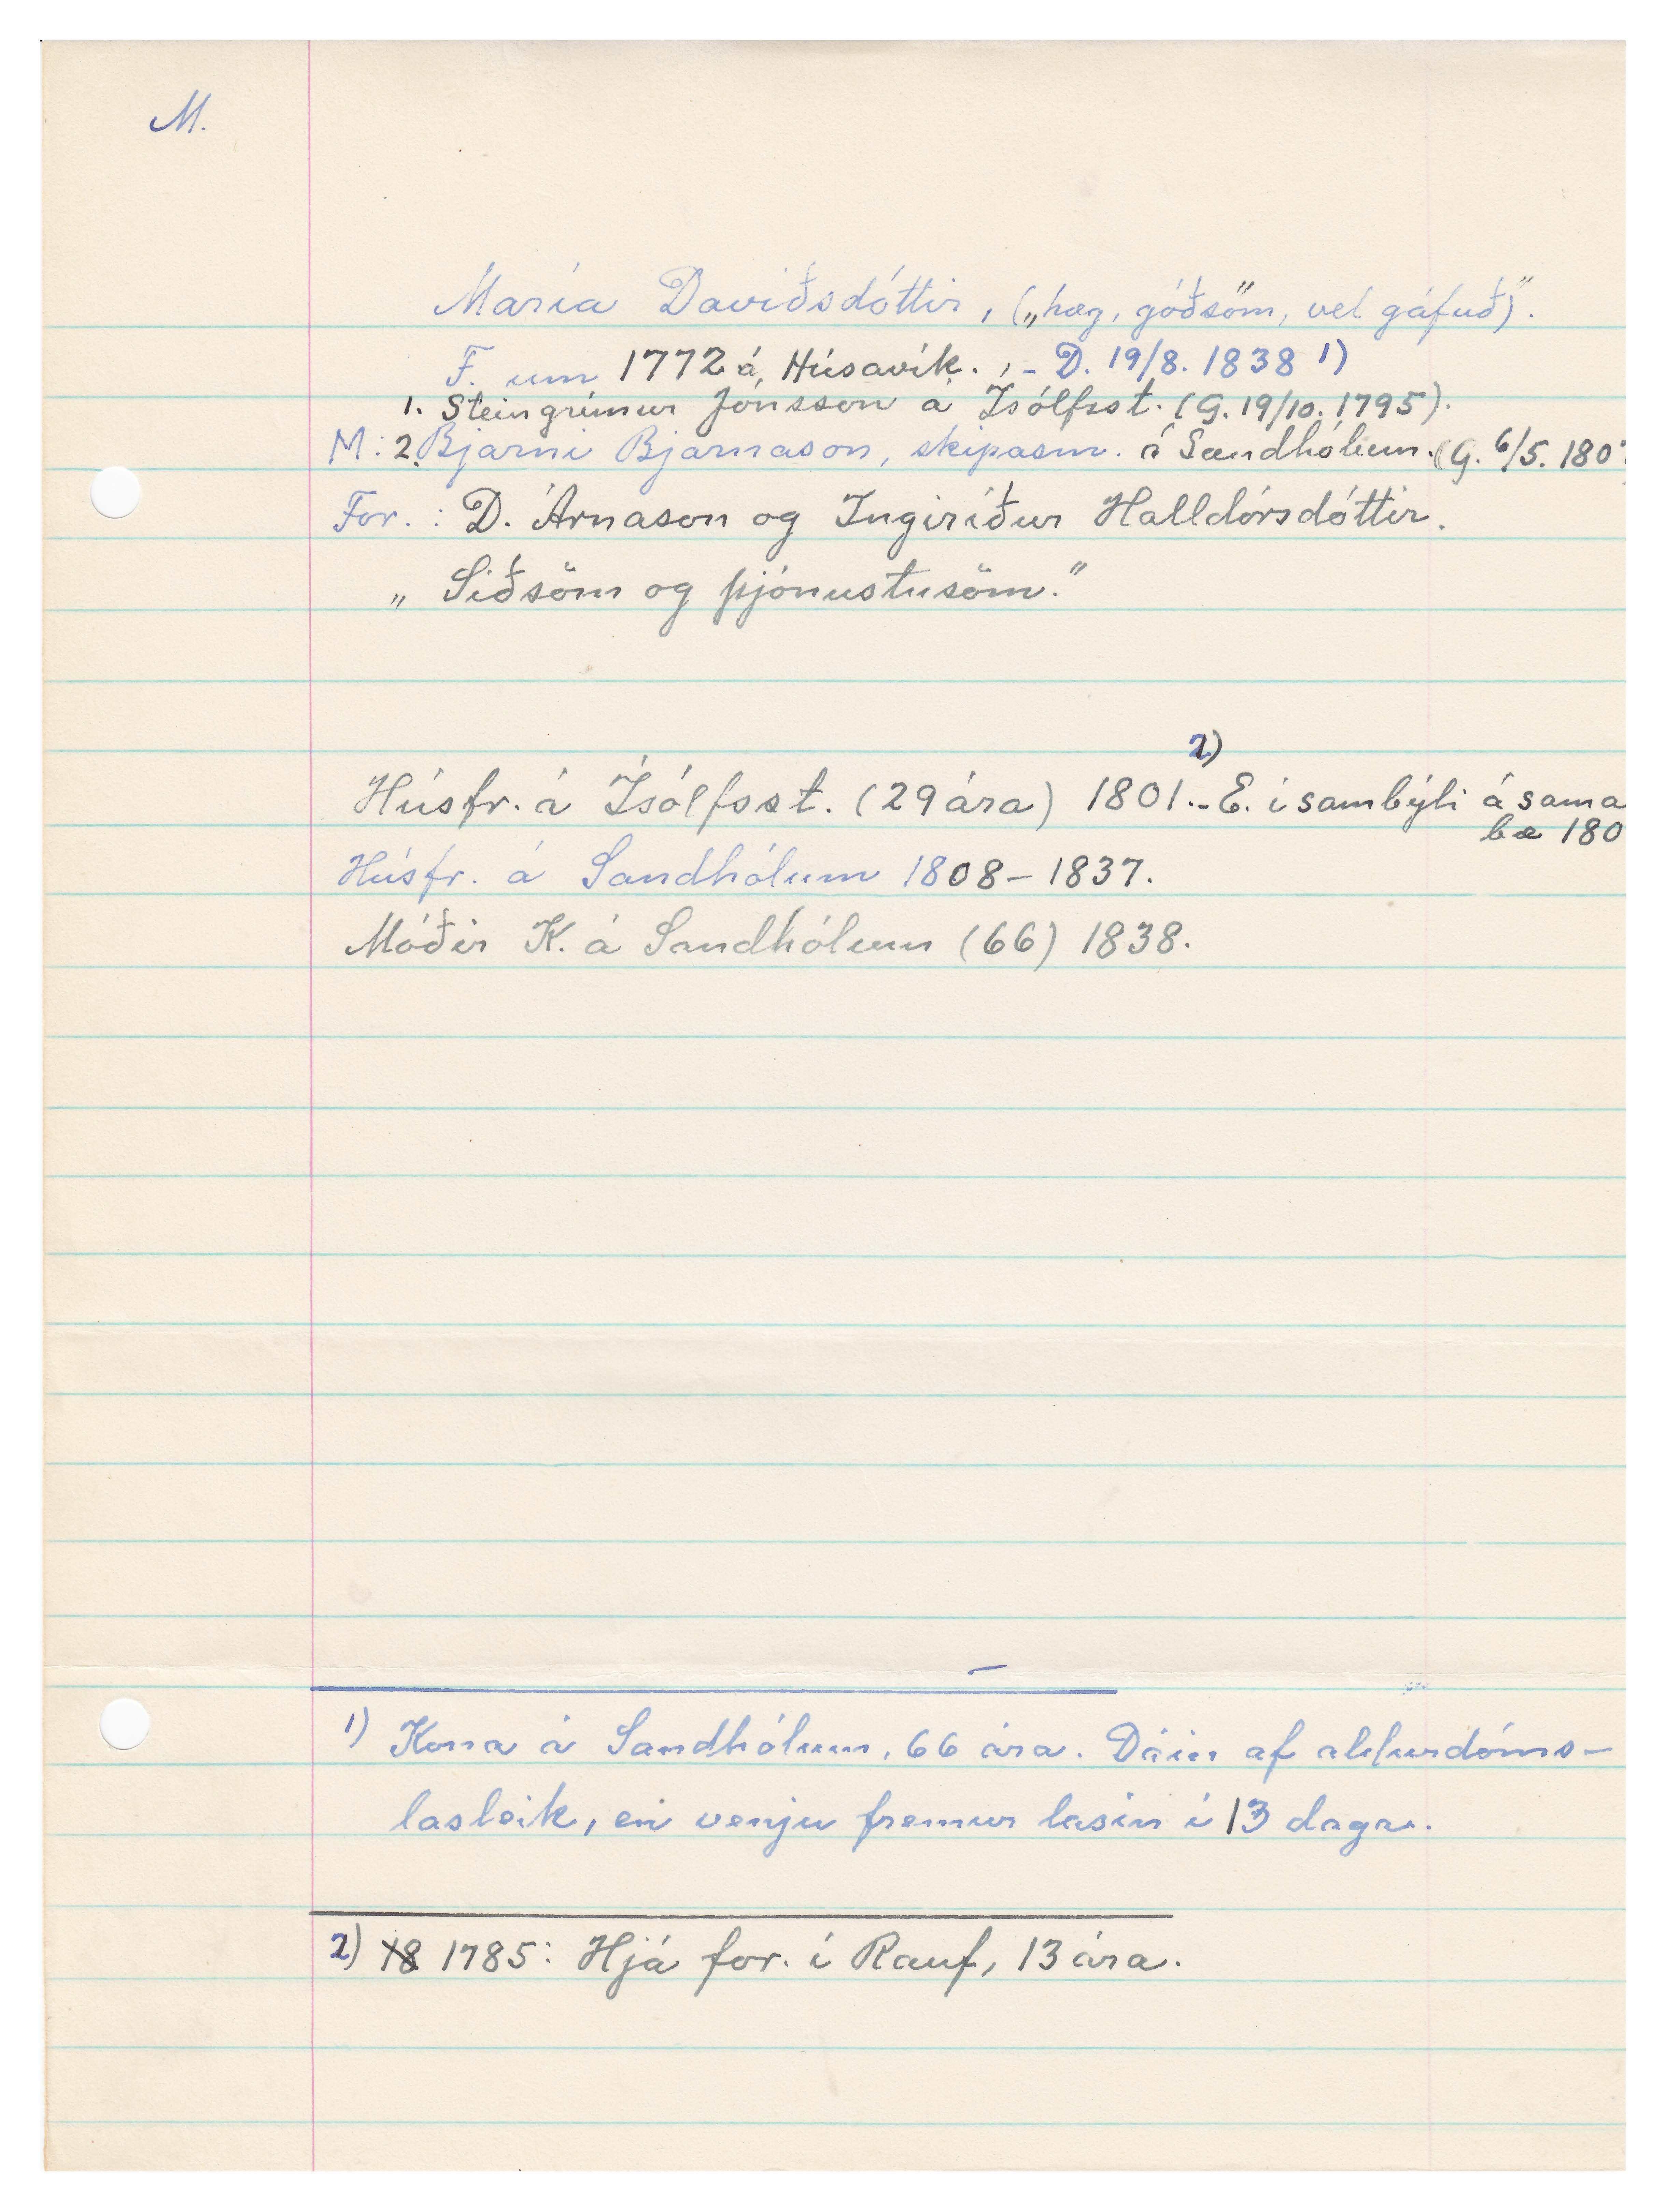 M.
María Davíðsdóttir, („hæg, góðsöm, vel gáfuð)".
F. um 1772 á Húsavík. , - D. 19/8. 1838 1)
1. Steingrímur Jónsson á Ísólfsst. (G. 19/10. 1795).
M: 2. Bjarni Bjarnason, skipasm. á Sandhólum. (G. 6/5. 180
For. : D. Árnason og Ingiríður Halldórsdóttir.
„Siðsöm og þjónustusöm."
2)
Húsfr. á Ísólfsst. (29 ára) 1801.- E. í sambýli á sama
bæ 180
Húsfr. á Sandhólum 1808-1837.
Móðir K. á Sandhólum (66) 1838.
1) Kona á Sandhólum, 66 ára. Dáin af aldurdóms-
lasleik, en venju fremur lasin í 13 daga.
2) 18 1785: Hjá for. í Rauf, 13 ára.